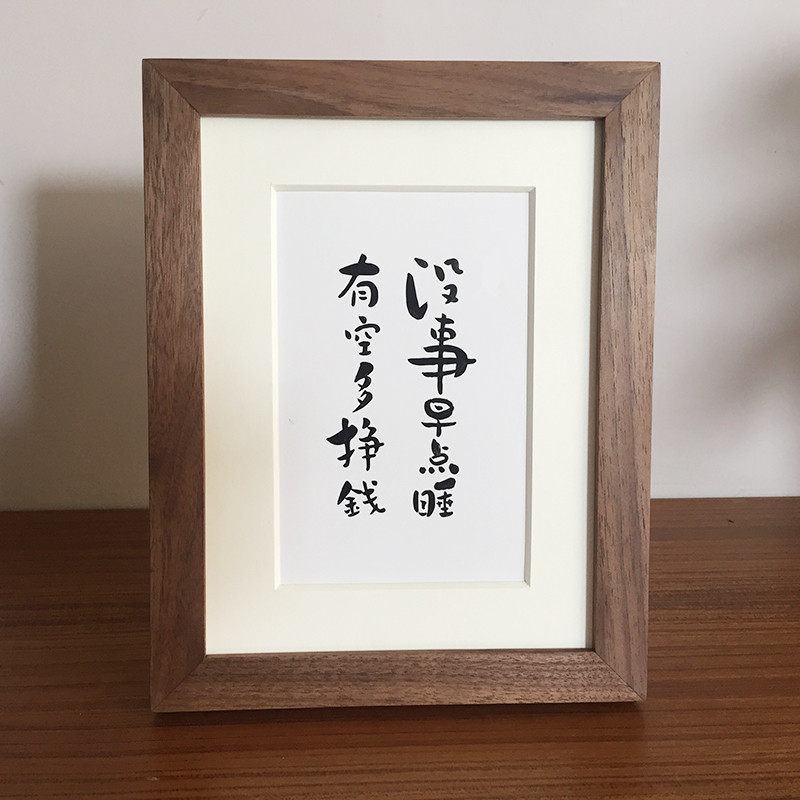 没事早点睡
有空多挣錢